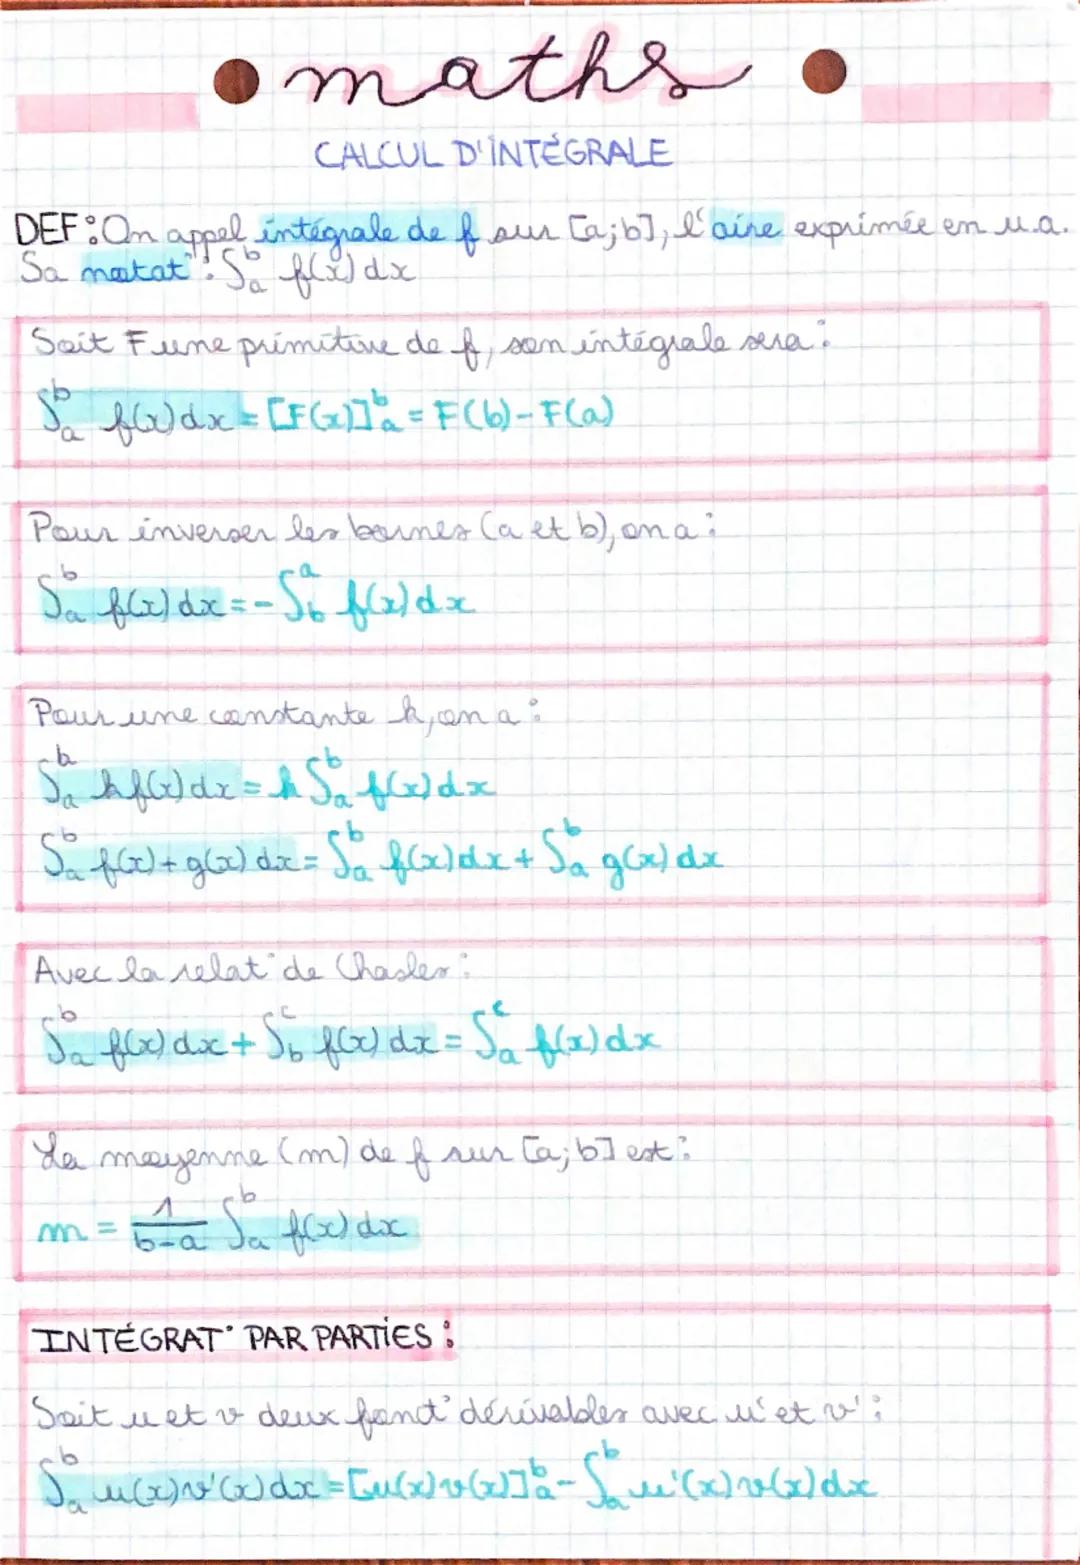 maths
CALCUL D'INTÉGRALE
DEF: On appel intégrale de f sur [a;b], l'aire exprimée en u.a.
Sa notat° : ∫ₐᵇ f(x) dx
Soit F une primitive de f, son intégrale sera :
∫ₐᵇ f(x) dx = [F(x)]ₐᵇ = F(b) - F(a)
Pour inverser les bornes (a et b), on a :
∫_a^b f(x) dx = - ∫_b^a f(x) dx
Pour une constante k, on a :
∫_a^b k f(x) dx = k ∫_a^b f(x) dx
∫_a^b f(x) + g(x) dx = ∫_a^b f(x) dx + ∫_a^b g(x) dx
Avec la relat° de Chasles :
∫_a^b f(x) dx + ∫_b^c f(x) dx = ∫_a^c f(x) dx
La moyenne (m) de f sur [a;b] est :
m = 1/(b-a) ∫_a^b f(x) dx
INTÉGRAT° PAR PARTIES :
Soit u et v deux fonct° dérivables avec u' et v' :
∫_a^b u(x)v'(x) dx = [u(x)v(x)]_a^b - ∫_a^b u'(x)v(x) dx